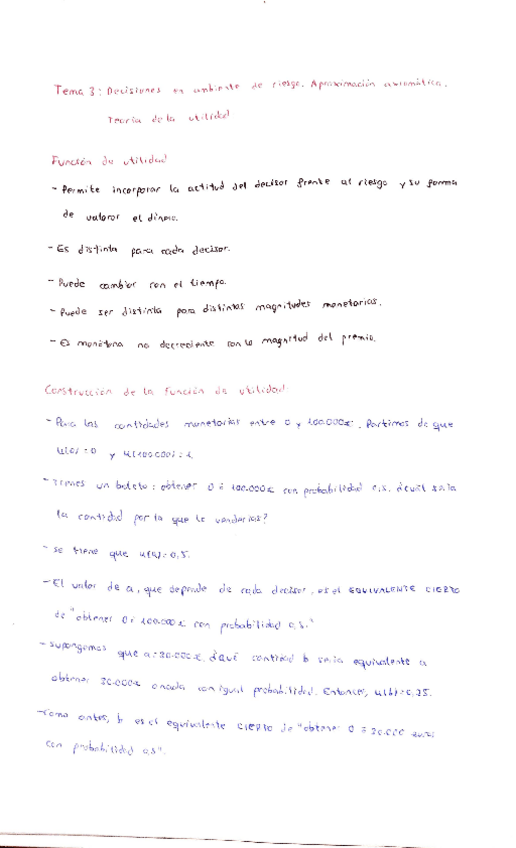 Tema 3: Decisiones en ambiente de riesgo. Aproximación axiomática.
Teoría de la utilidad
Función de utilidad
- Permite incorporar la actitud del decisor frente al riesgo y su forma
de valorar el dinero.
- Es distinta para cada decisor.
- Puede cambiar con el tiempo.
- Puede ser distinta para distintas magnitudes monetarias.
- Es monótona no decreciente con la magnitud del premio.
Construcción de la función de utilidad
- Para las cantidades monetarias entre 0 y 100.000€. Partimos de que
u(0)=0 y u(100.000)=1.
- Tienes un boleto: obtener 0 ó 100.000€ con probabilidad 0,5. ¿Cuál sería
la cantidad por la que le venderías?
- Se tiene que u(a)=0,5.
- El valor de a, que depende de cada decisor, es el EQUIVALENTE CIERTO
de "obtener 0 ó 100.000€ con probabilidad 0,5."
- Supongamos que a=20.000€. ¿Qué cantidad b sería equivalente a
obtener 20.000€ o nada con igual probabilidad. Entonces, u(b)=0,25.
- Como antes, b es el equivalente CIERTO de "obtener 0 ó 20.000 euros
con probabilidad 0,5".